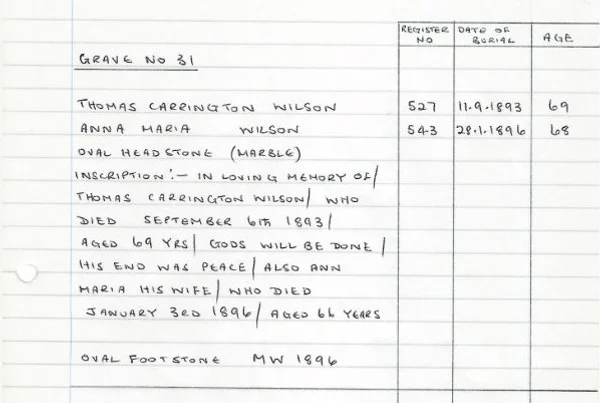 REGISTER NO DATE OF BURIAL AGE
GRAVE NO 31
THOMAS CARRINGTON WILSON 527 11.9.1893 69
ANNA MARIA WILSON 543 28.1.1896 68
OVAL HEADSTONE (MARBLE)
INSCRIPTION:- IN LOVING MEMORY OF/
THOMAS CARRINGTON WILSON/ WHO
DIED SEPTEMBER 6TH 1893/
AGED 69 YRS/ GODS WILL BE DONE/
HIS END WAS PEACE/ ALSO ANN
MARIA HIS WIFE/ WHO DIED
JANUARY 3RD 1896/ AGED 66 YEARS
OVAL FOOTSTONE MW 1896